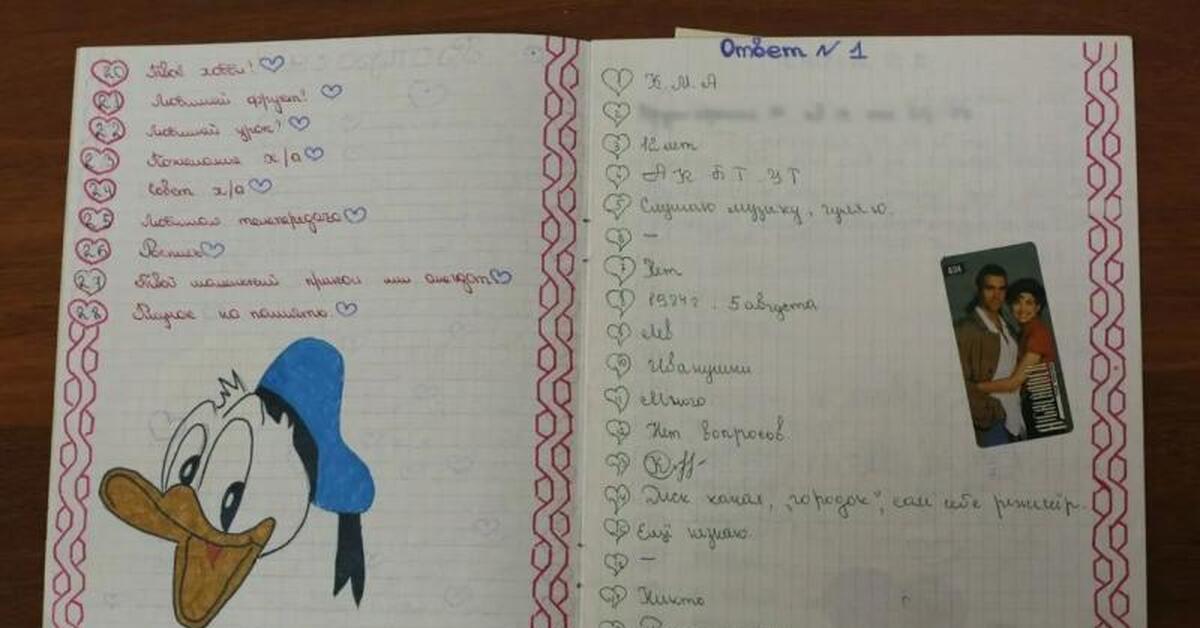 20 Твоё хобби!
21 Любимый фрукт!
22 Любимый урок!
23 Пожелание х/а
24 Совет х/а
25 Любимая телепередача
26 Роспись
27 Твой маленький прикол или анекдот
28 Рисунок на память.
Ответ № 1
1 К.М.А
2
3 12 лет
4 АК БТ ЦТ
5 Слушаю музыку, гуляю.
6 –
7 Нет
8 1984 г. 5 августа
9 Лев
10 Иванушки
11 Много
12 Нет вопросов
13
14 Диск канал, "городок", сам себе режиссёр.
15 Ещё незнаю.
16 –
17 Никто
HIGHLANDER